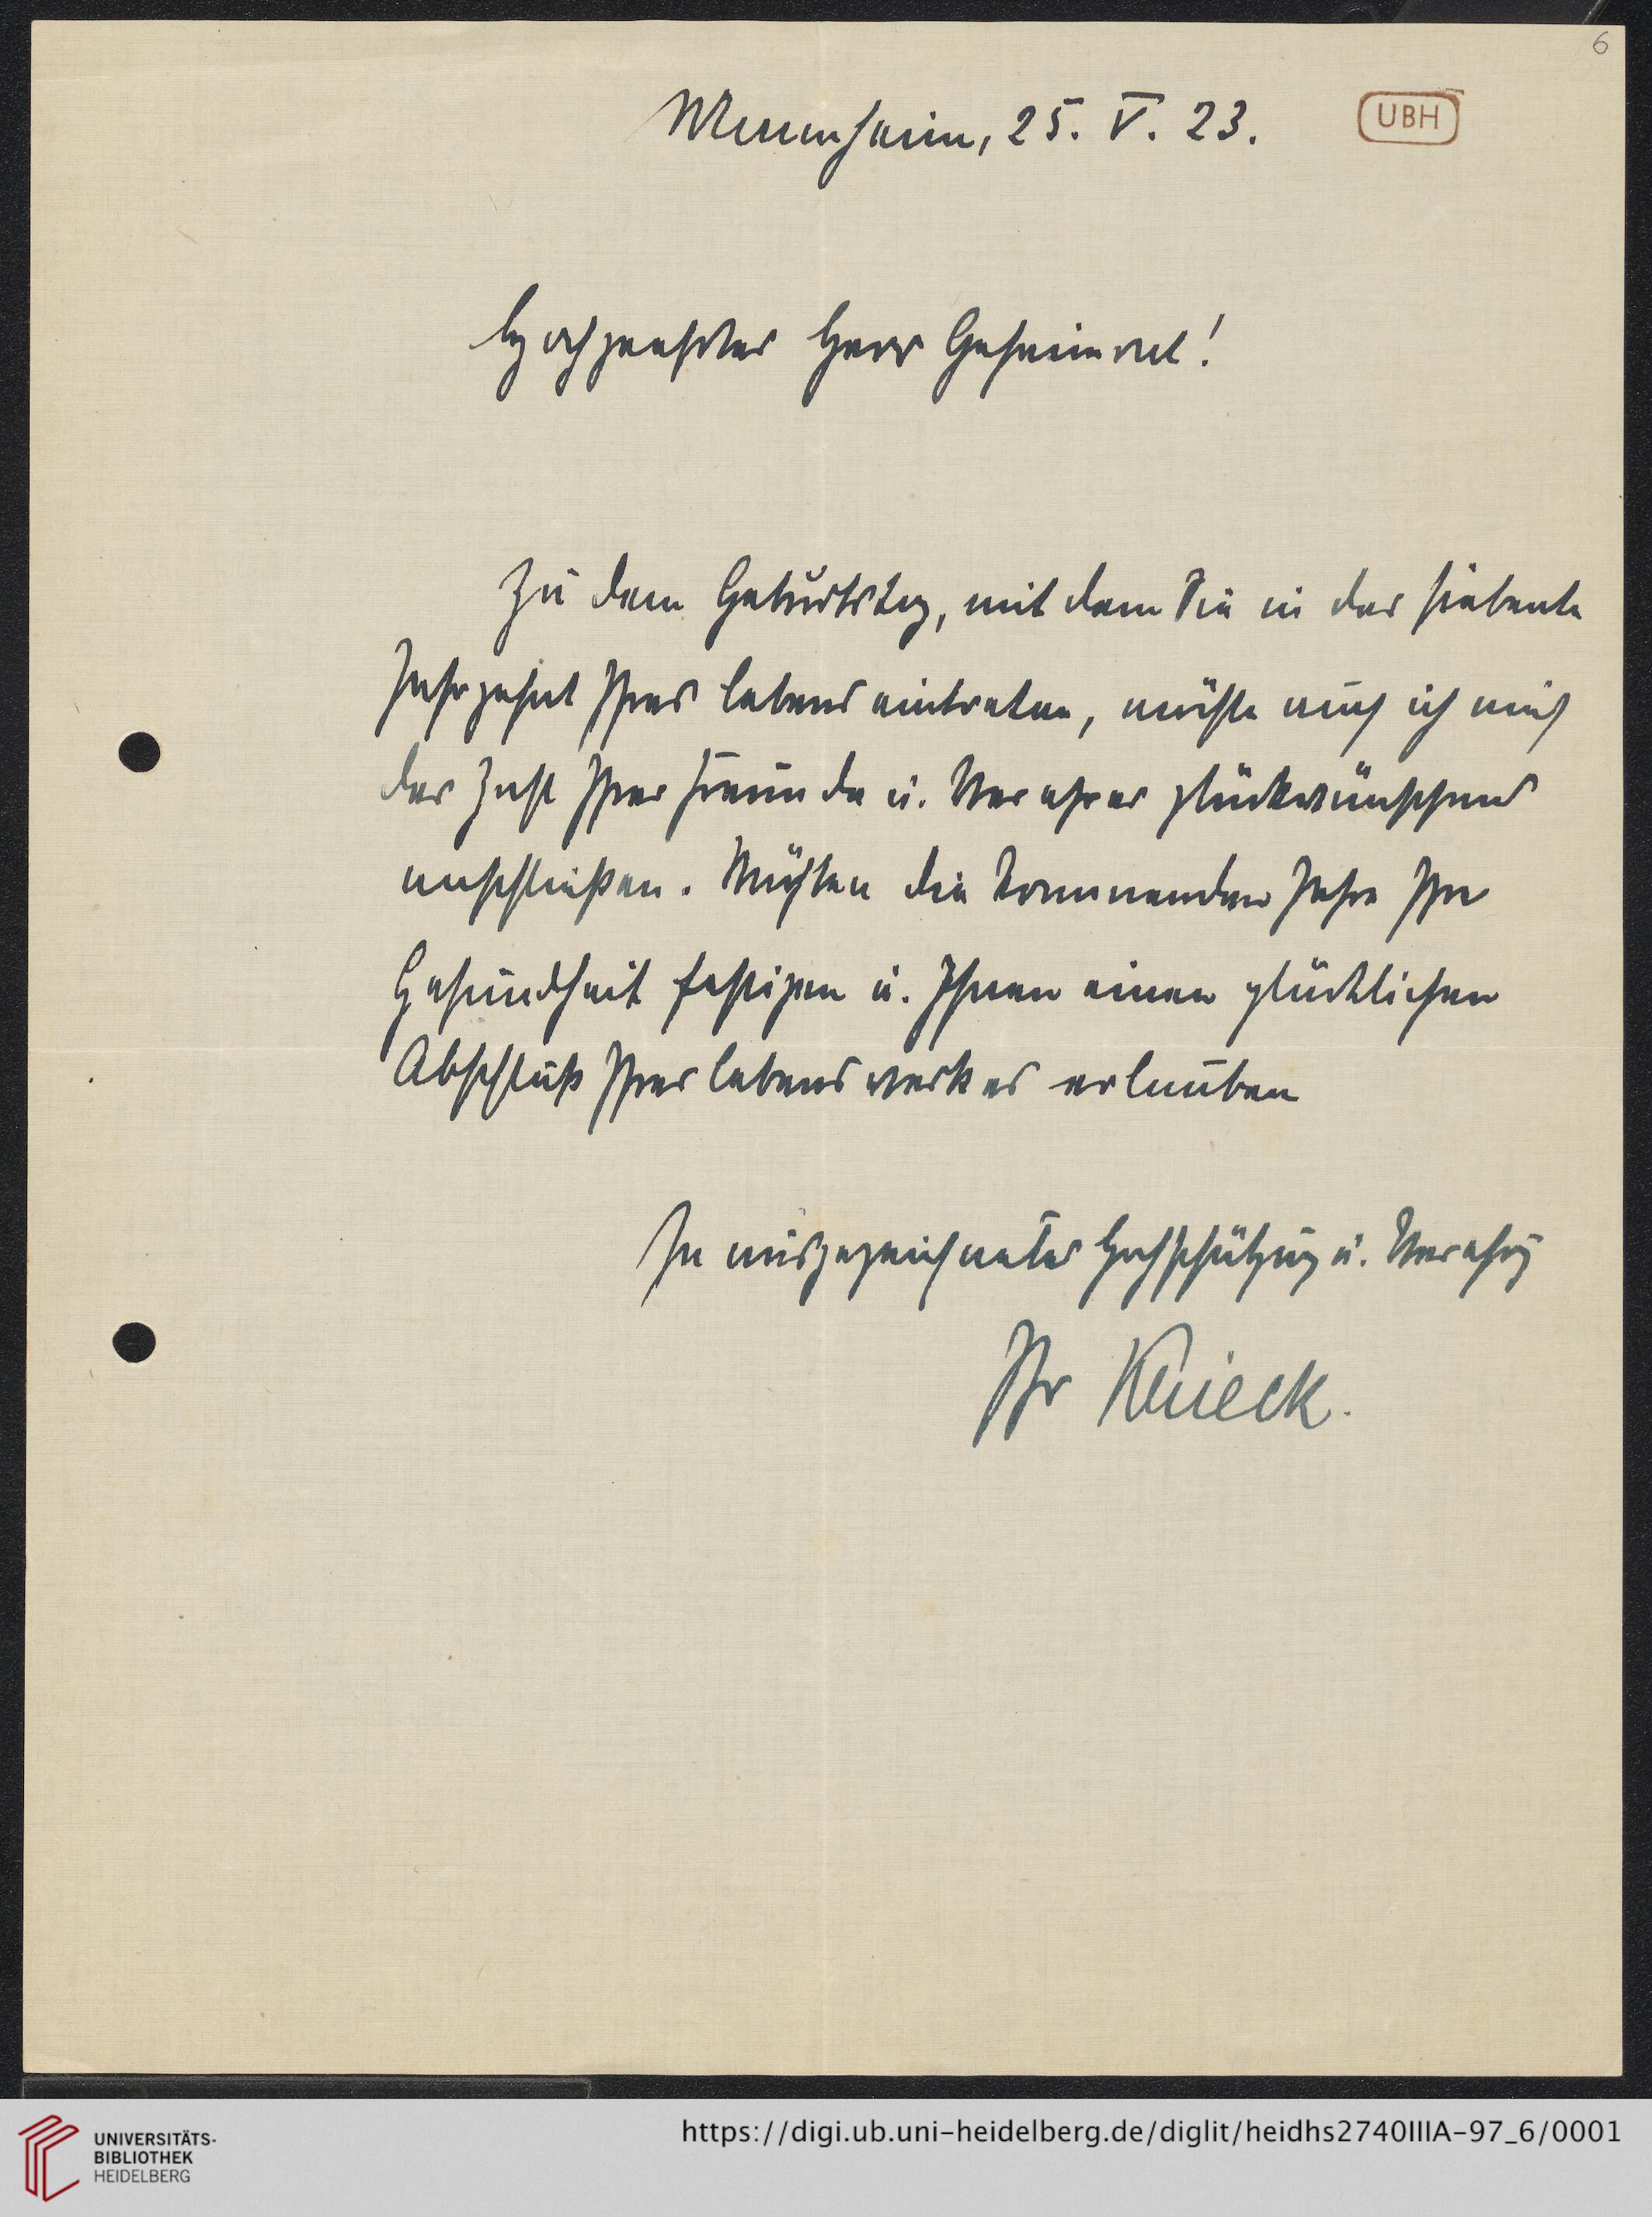 6
Mannheim, 25. V. 23.
UBH
Hochgeehrter Herr Geheimrat!
Zu dem Geburtstag, mit dem Sie in das siebente
Jahrzehnt Ihres Lebens eintreten, möchte auch ich mich
der Zahl Ihrer Freunde u. Verehrer glückwünschend
anschließen. Möchten die kommenden Jahre Ihre
Gesundheit festigen u. Ihnen einen glücklichen
Abschluß Ihres Lebenswerkes erlauben
In ausgezeichneter Hochschätzung u. Verehrg
Ihr
UNIVERSITÄTS-
BIBLIOTHEK
HEIDELBERG
https://digi.ub.uni-heidelberg.de/diglit/heidhs2740IIIA-97_6/0001